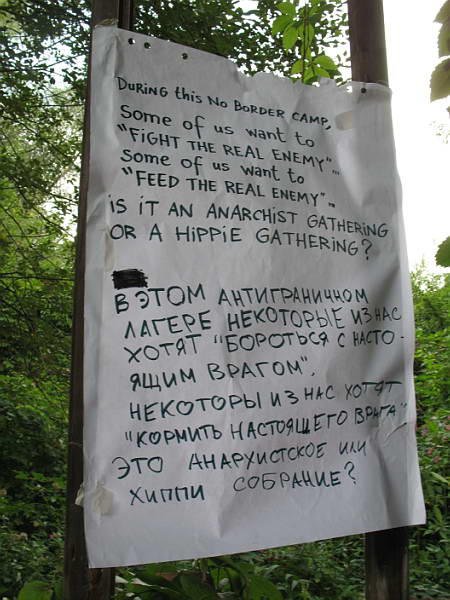 DURING this NO BORDER CAMP,
Some of us want to
"FIGHT THE REAL ENEMY"...
Some of us want to
"FEED THE REAL ENEMY"...
IS IT AN ANARCHIST GATHERING
OR A HIPPIE GATHERING?
В ЭТОМ АНТИГРАНИЧНОМ
ЛАГЕРЕ НЕКОТОРЫЕ ИЗ НАС
ХОТЯТ "БОРОТЬСЯ С НАСТО-
ЯЩИМ ВРАГОМ".
НЕКОТОРЫ ИЗ НАС ХОТЯТ
"КОРМИТЬ НАСТОЯЩЕГО ВРАГА"
ЭТО АНАРХИСТСКОЕ ИЛИ
ХИППИ СОБРАНИЕ?